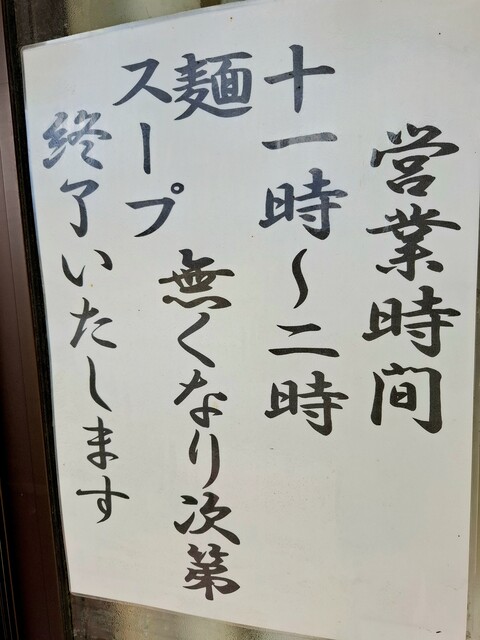 営業時間
十一時〜二時
麺
スープ
無くなり次第
終了いたします